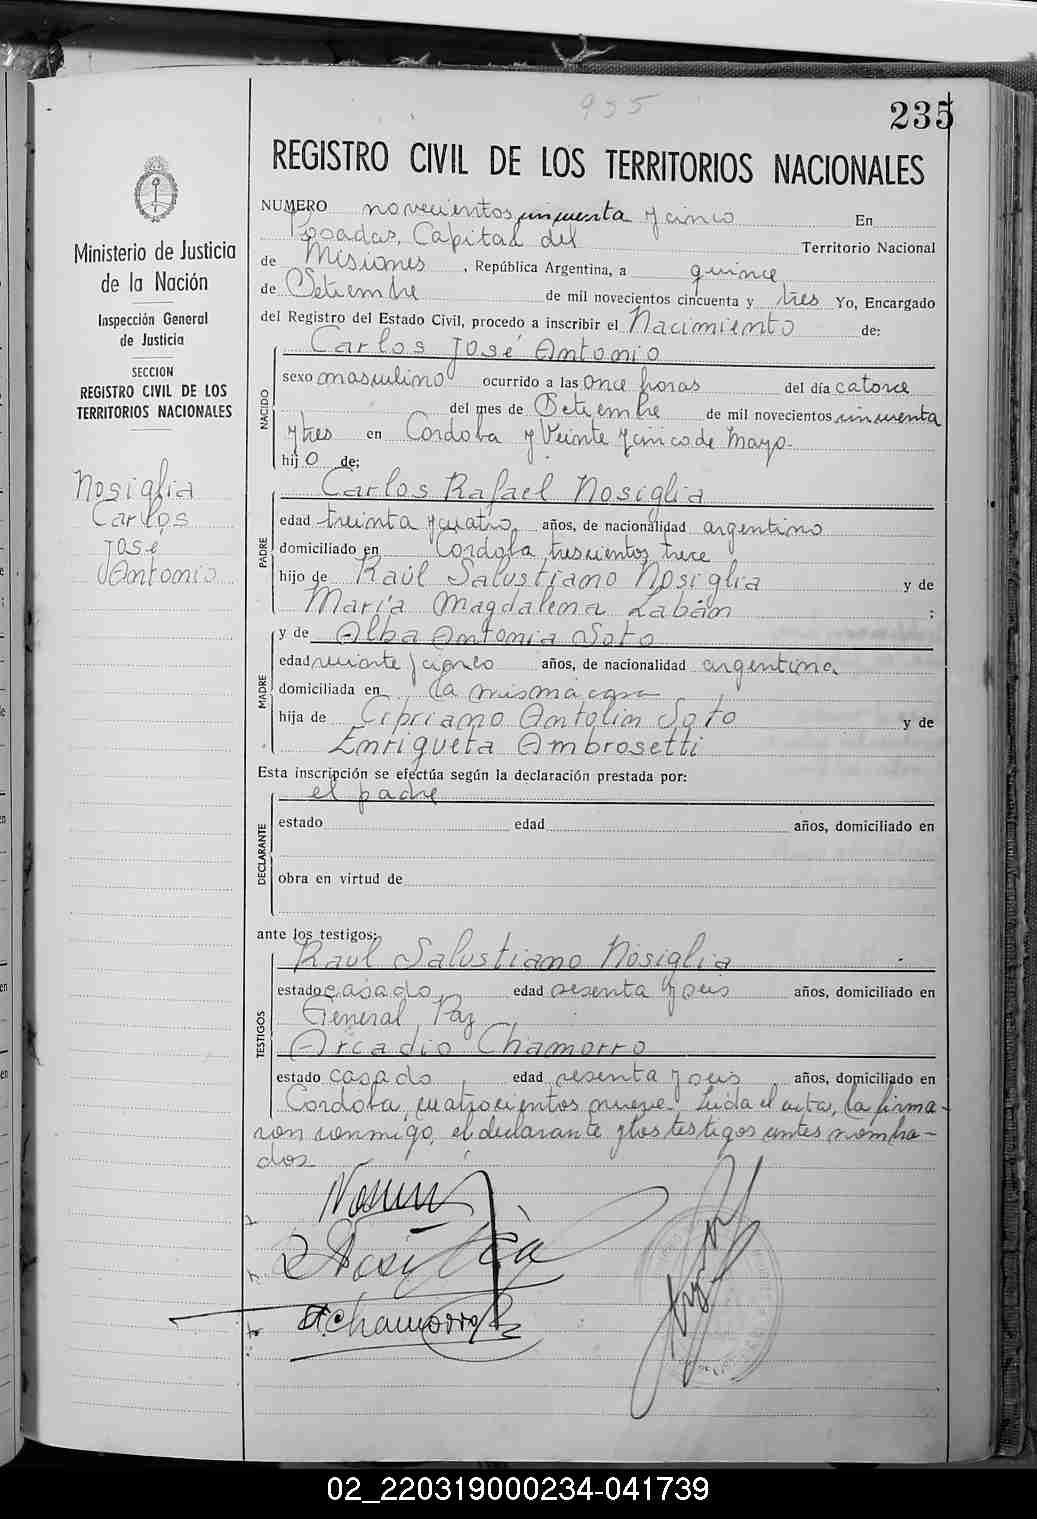 955
235
REGISTRO CIVIL DE LOS TERRITORIOS NACIONALES
Ministerio de Justicia
de la Nación
Inspección General
de Justicia
SECCION
REGISTRO CIVIL DE LOS
TERRITORIOS NACIONALES
Nosiglia
Carlos
José
Antonio
NUMERO novecientos cincuenta y cinco En
Posadas, Capital del Territorio Nacional
de Misiones, República Argentina, a quince
de Setiembre de mil novecientos cincuenta y tres Yo, Encargado
del Registro del Estado Civil, procedo a inscribir el Nacimiento de:
NACIDO
Carlos José Antonio
sexo masculino ocurrido a las once horas del día catorce
del mes de Setiembre de mil novecientos cincuenta
y tres en Cordoba y Veinte y cinco de Mayo.
hijo de;
PADRE
Carlos Rafael Nosiglia
edad treinta y cuatro años, de nacionalidad argentino
domiciliado en Cordoba trescientos trece
hijo de Raúl Salustiano Nosiglia y de
María Magdalena Labán ;
MADRE
y de Alba Antonia Soto
edad veinte y cinco años, de nacionalidad argentina
domiciliada en la misma casa
hija de Cipriano Antolin Soto y de
Enriqueta Ambrosetti
Esta inscripción se efectúa según la declaración prestada por:
DECLARANTE
el padre
estado edad años, domiciliado en
obra en virtud de
ante los testigos:
TESTIGOS
Raul Salustiano Nosiglia
estado casado edad sesenta y seis años, domiciliado en
General Paz
Arcadio Chamorro
estado casado, edad sesenta y seis años, domiciliado en
Cordoba cuatrocientos nueve. Leida el acta, la firma-
ron conmigo, el declarante y los testigos antes nombra-
dos
R Nosiglia
A. Chamorro
02_220319000234-041739